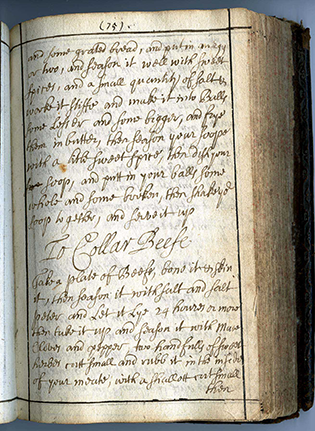 (75)
and some grated bread, and put in an egg
or two, and season it well with sweet
spices, and a small quantity of salt &
work it stiffe and make it into Balls
some Lesser and some bigger, and frye
them in butter, then season your soope
with a litle sweet spice, then dish your
soop, and putt in your balls some
whole and some broken, then shake ye
soop together, and serve it up
To Collar Beefe
Take a plate of Beefe, bone it & skin
it, then season it with salt and salt
peter and Let it Lye 24 hours or more
then take it up and season it with Mace
Cloves and pepper two handfulls of sweet
herbes cutt small and rubb it in the inside
of your meate, with a shallott cutt small
then